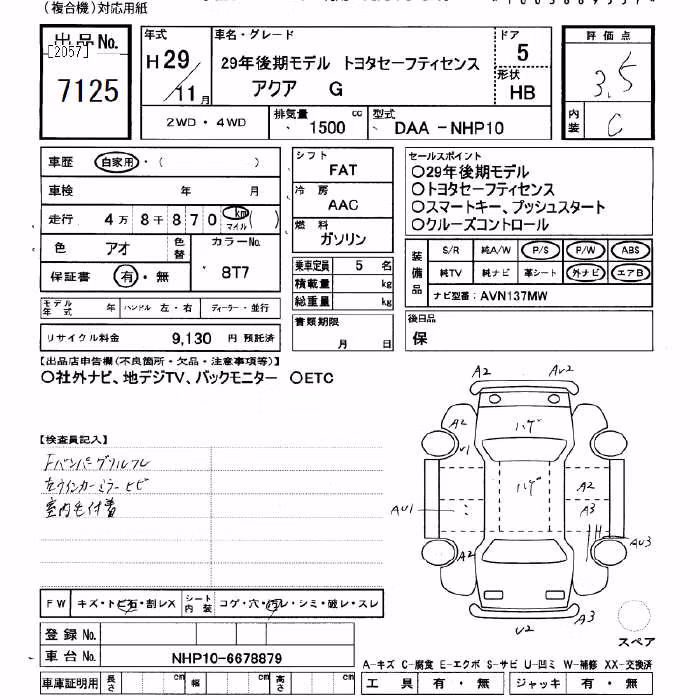 (複合機)対応用紙
出品No.
[2057]
7125
年式
H 29 / 11 月
車名・グレード
29年後期モデル トヨタセーフティセンス
アクア G
ドア
5
形状
HB
評価点
3.5
内装
C
2WD・4WD
排気量
1500 cc
型式
DAA -NHP10
車歴 自家用・( )
車検 年 月
走行 4万8千870 km マイル ( )
色 アオ 色替 カラーNo. 8T7
保証書 有・無
シフト
FAT
冷房
AAC
燃料
ガソリン
乗車定員 5 名
積載量 kg
総重量 kg
書類期限
月 日
セールスポイント
○29年後期モデル
○トヨタセーフティセンス
○スマートキー、プッシュスタート
○クルーズコントロール
装備品
S/R 純A/W P/S P/W ABS
純TV 純ナビ 革シート 外ナビ エアB
ナビ型番: AVN137MW
後日品
保
モデル年式 年 ハンドル 左・右 ディーラー・並行
リサイクル料金 9,130 円 預託済
【出品店申告欄(不良箇所・欠品・注意事項等)】
○社外ナビ、地デジTV、バックモニター ○ETC
【検査員記入】
Fバンパーグリルフレ
左ウインカーミラーヒビ
室内毛付着
A2 AU2
A2 ハゲ A2
U1
ハゲ A2
AU1 A3
A2 AU3
U2 A3
スペア
FW キズ・トビ石・割レX シート内装 コゲ・穴・汚レ・シミ・破レ・スレ
登録No.
車台No. NHP10-6678879
車庫証明用 長さ cm 幅 cm 高さ cm
A-キズ C-腐食 E-エクボ S-サビ U-凹ミ W-補修 XX-交換済
工具 有・無 ジャッキ 有・無